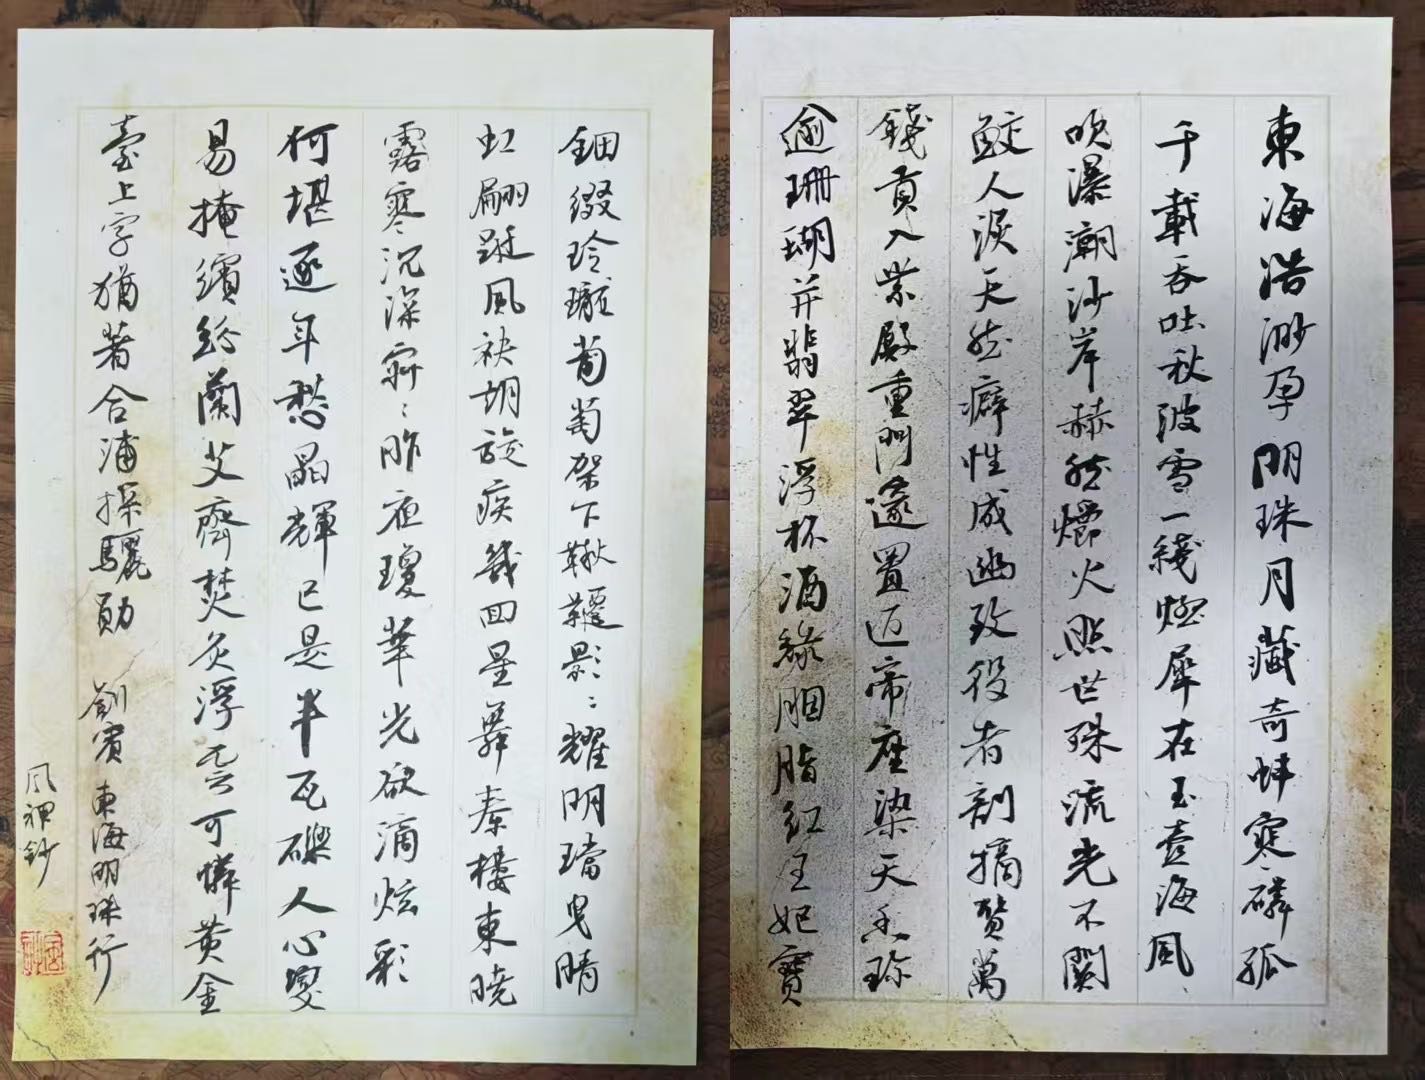 東海浩渺孕明珠月藏奇蚌寒磷孤
千載吞吐秋波雪一綫燃犀在玉壺海風
吹瀑潮沙岸赫然爝火照世殊流光不關
鮫人淚天然癖性成幽致役者剖摘贅萬
錢貢入紫殿重門邃置近帝座染天香珍
逾珊瑚并翡翠浮杯酒綠胭脂紅王妃寶
鈿綴玲瓏葡萄架下鞦韆影〻耀明璫曳晴
虹翩躚風袂胡旋疾幾回星舞秦樓東曉
露寒沉深竂〻昨夜瓊華光欲滴炫彩
何堪逐年愁晶輝已是半瓦礫人心變
易掩繽紛蘭艾齊焚灸浮雲可憐黄金
臺上字猶著合浦探驪勛 劉賓 東海明珠行
風裡鈔